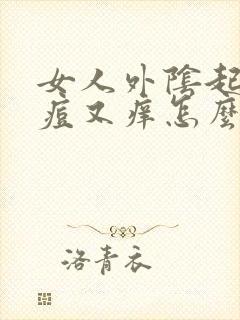 女人外陰起
痘又痒怎麼
洛青衣